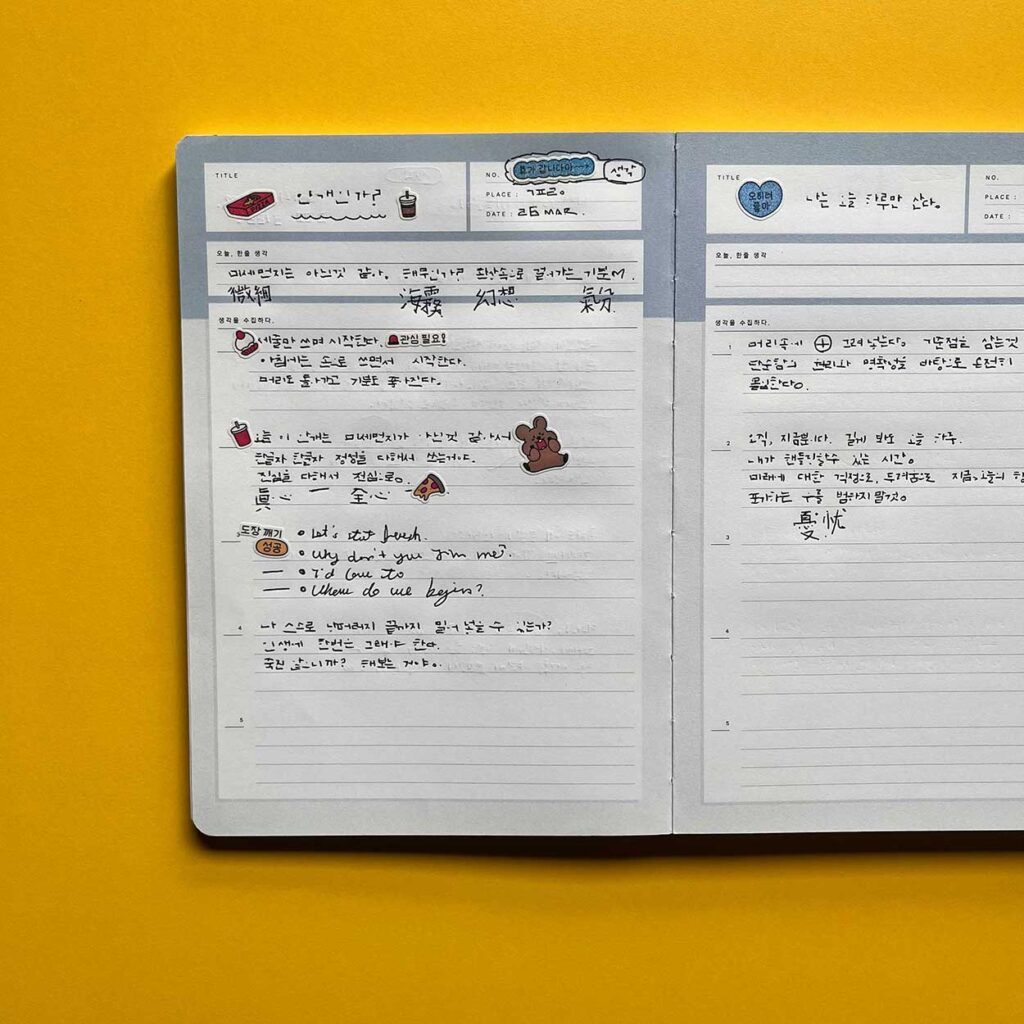 TITLE
안개인가?
NO. 휴가 갑니다아~ 생각
PLACE :
DATE : 26 MAR.
오늘, 한줄 생각
미세먼지는 아닌것 같아. 해무인가? 환상속으로 걸어가는 기분
微細 海霧 幻想 氣分
생각을 수집하다.
세줄만 쓰며 시작한다. 관심 필요!
아침에는 손으로 쓰면서 시작한다.
머리도 돌아가고 기분도 좋아진다.
오늘 이 안개는 미세먼지가 아닌것 같아서
한글자 한글자 정성을 다해서 쓰는거야.
진심을 다해서 전심으로.
眞心 一 全心
도장 깨기 Let's start fresh.
성공 Why don't you join me?
I'd love to
Where do we begin?
4 나 스스로 낭떠러지 끝까지 밀어 넣을 수 있는가?
인생에 한번은 그래야 한다.
해보는 거야.
5
TITLE
오히려 좋아 나는 오늘 하루만 산다.
NO.
PLACE :
DATE :
오늘, 한줄 생각
생각을 수집하다.
1 머리속에 ⊕ 그려 넣는다. 기준점을 삼는것
단순함의 원리와 명확성을 바탕으로 온전히
몰입한다.
2 오직, 지금뿐이다. 길게 봐도 오늘 하루.
내가 핸들링할수 있는 시간.
미래에 대한 걱정으로, 두려움으로 지금, 오늘의
포기하는 우를 범하지 말것.
憂 忧
3
4
5